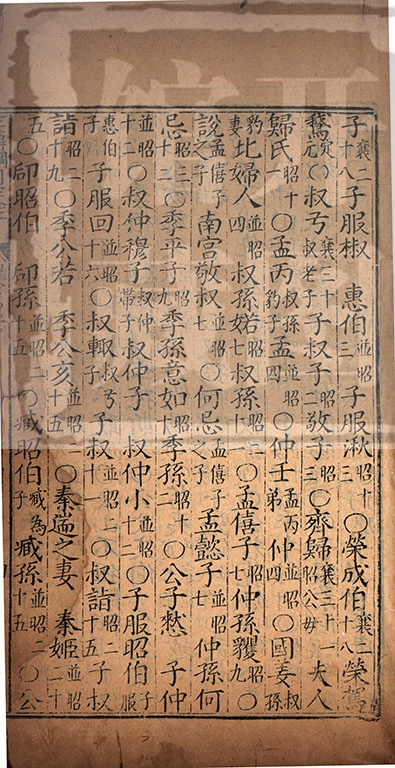 子襄二十八子服椒　惠伯並昭三子服湫昭十三〇榮成伯襄二十八榮駕
鵞定元〇叔弓襄三十子叔子叔老子二敬子昭三〇齊歸襄三十一昭公母夫人
歸氏昭十一〇孟丙叔孫豹子孟並昭四〇仲壬孟丙弟仲並昭四〇國姜叔孫
豹妻北婦人並昭四叔孫婼昭七叔孫昭二十一〇孟僖子昭七仲孫貜昭九〇
說孟僖子之子南宫敬叔並昭七〇何忌孟僖子之子孟懿子並昭七仲孫何
忌昭三十二〇季平子昭九季孫意如昭十季孫昭十二〇公子憖　子仲
並昭十二〇叔仲穆子叔仲帶子叔仲子　叔仲小並昭十二〇子服昭伯子服
惠伯子子服回並昭十六〇叔輒叔弓子子叔並昭二十一〇叔詣昭二十五子叔
詣昭二十九〇季公若　季公亥並昭二十五〇秦遄之妻　秦姬並昭二十
五〇郈昭伯　郈孫並昭二十五〇臧昭伯臧為子臧孫並昭二十五〇公